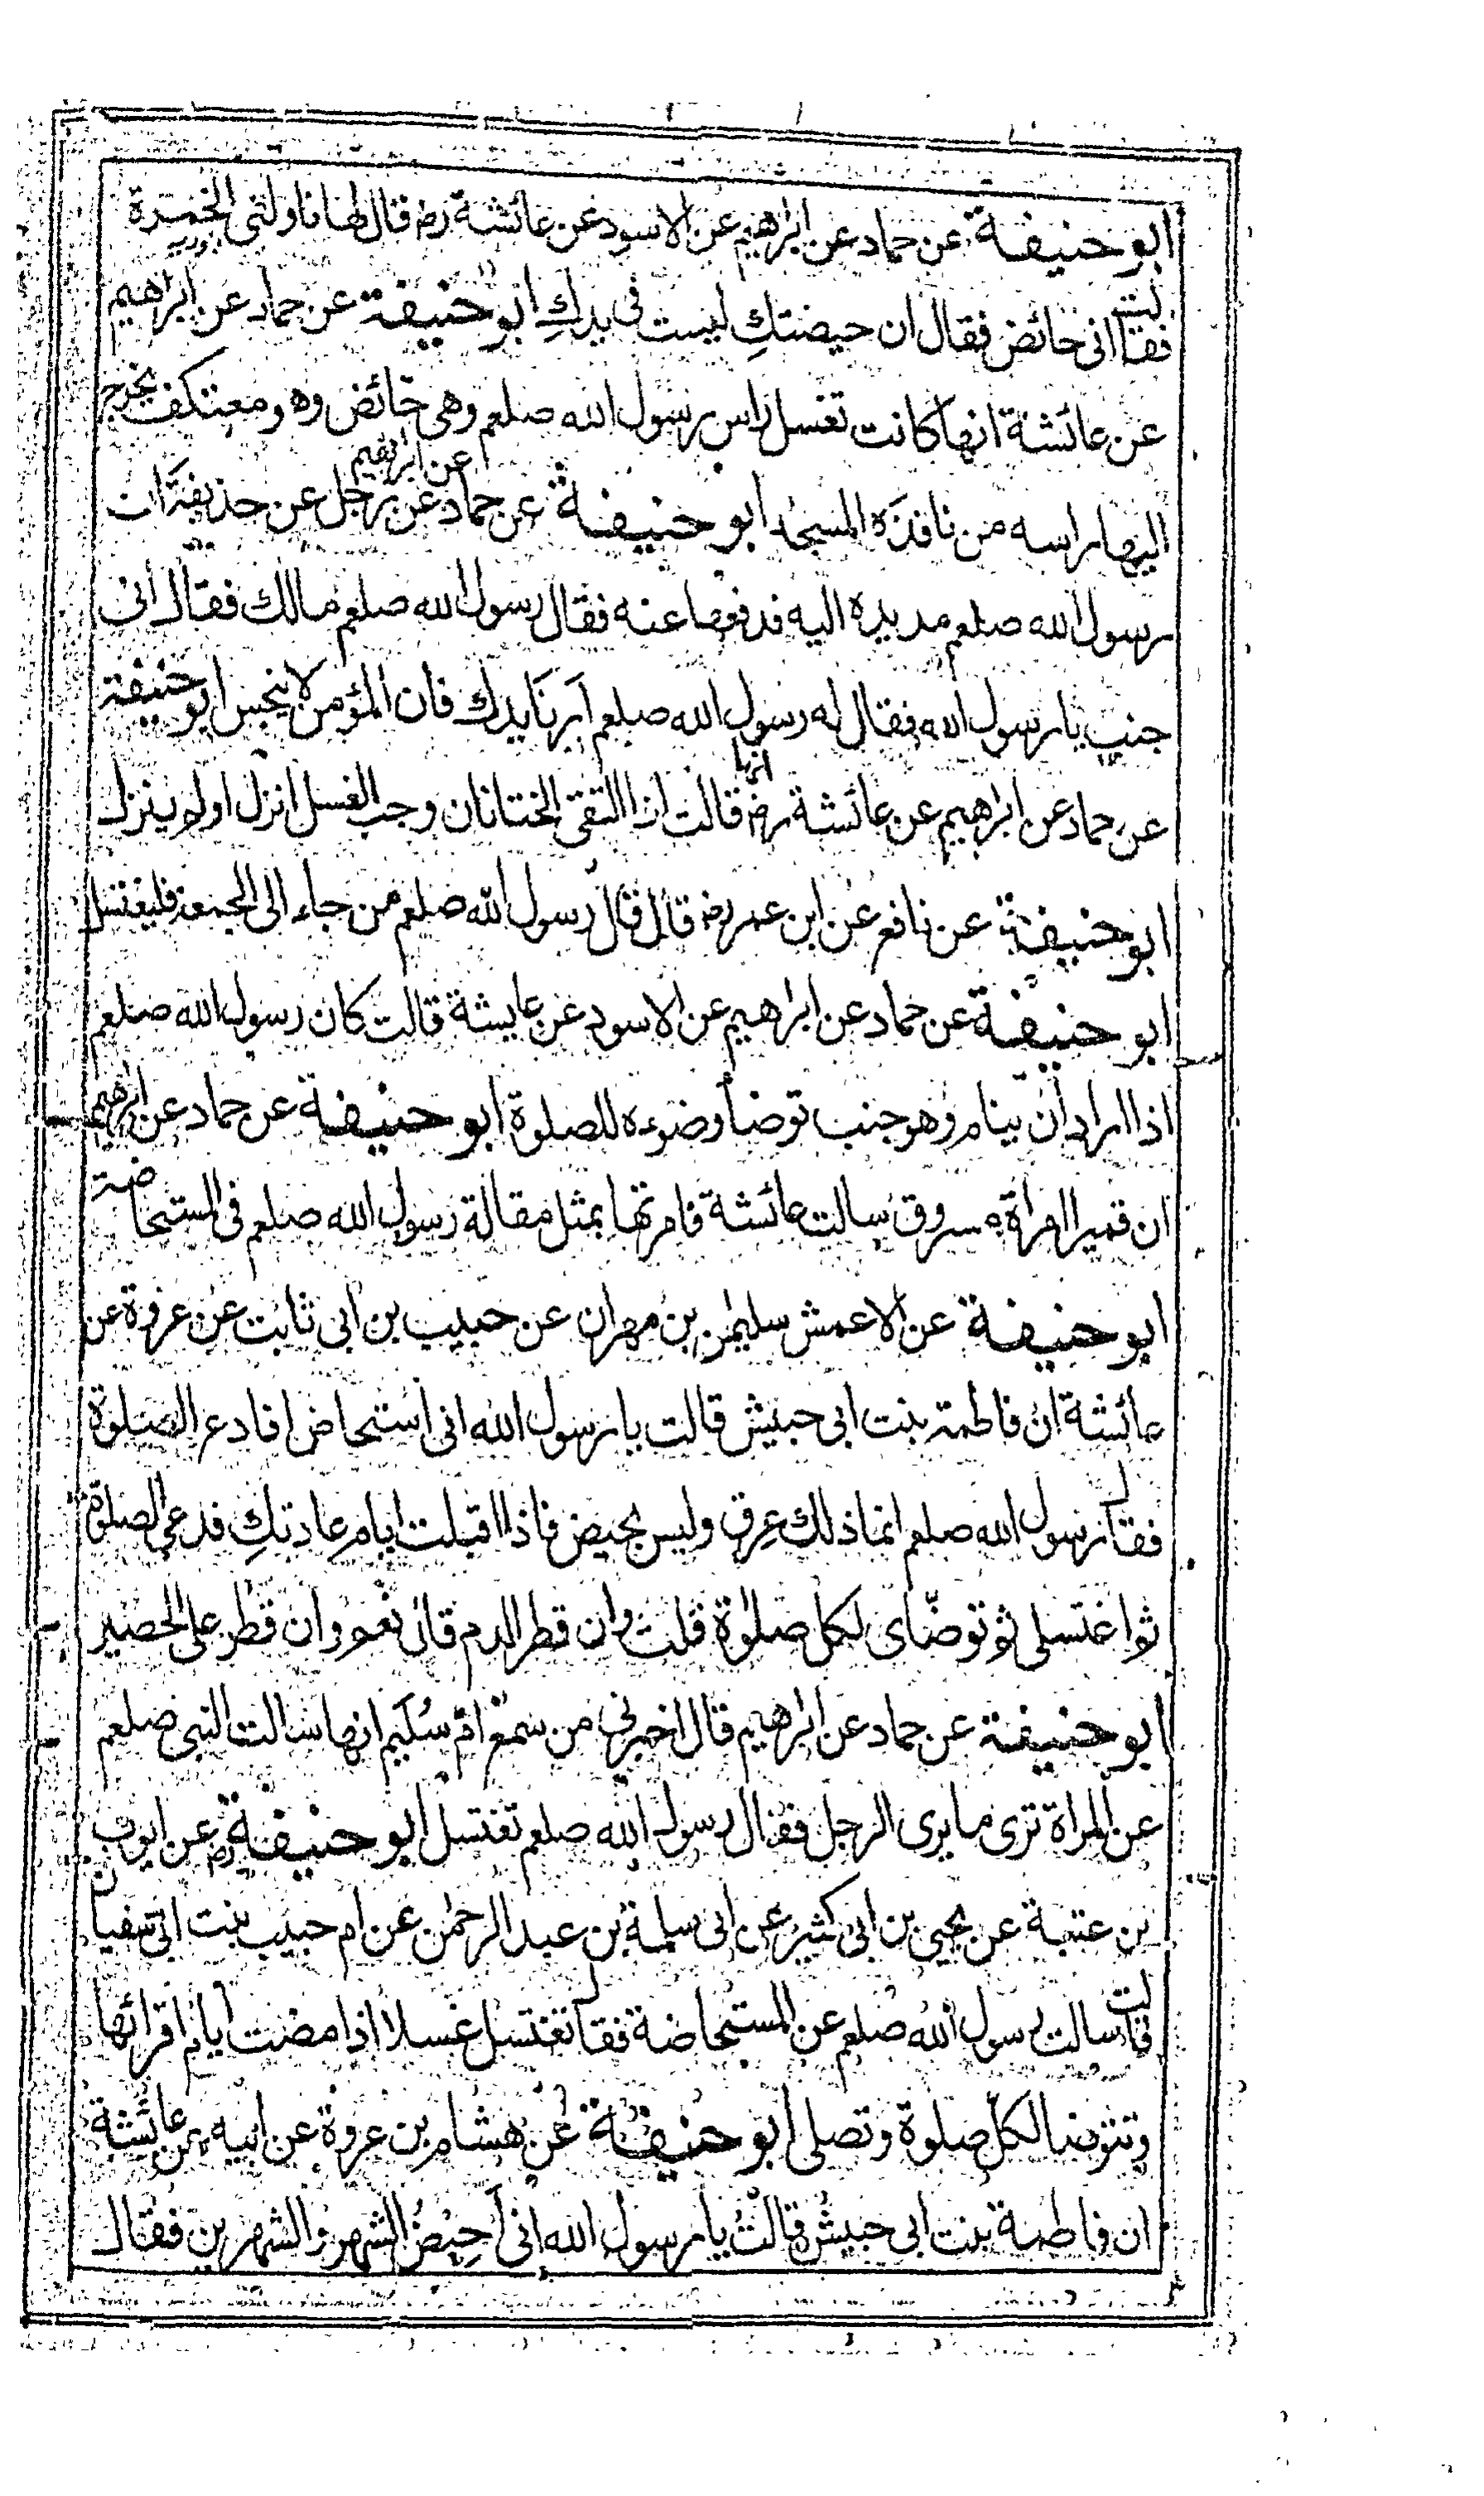 ابو حنيفة عن حماد عن ابراهيم عن الاسود عن عائشة رض قال لها ناوليني الخمرة
فقالت اني حائض فقال ان حيضتكِ ليست في يدكِ ابو حنيفة عن حماد عن ابراهيم
عن عائشة انها كانت تغسل راس رسول الله صلعم وهي حائض وهو معتكف يخرج
اليها راسه من نافذة المسجد ابو حنيفة عن حماد عن ابراهيم عن رجل عن حذيفة ان
رسول الله صلعم مد يده اليه فدفعها عنه فقال رسول الله صلعم مالك فقال اني
جنب يا رسول الله فقال له رسول الله صلعم اَرِنَا يدك فان المؤمن لا ينجس ابو حنيفة
عن حماد عن ابراهيم عن عائشة رض انها قالت اذا التقى الختانان وجب الغسل انزل او لم ينزل
ابو حنيفة عن نافع عن ابن عمر رض قال قال رسول الله صلعم من جاء الى الجمعة فليغتسل
ابو حنيفة عن حماد عن ابراهيم عن الاسود عن عايشة قالت كان رسول الله صلعم
اذا اراد ان ينام وهو جنب توضأ وضوءه للصلوة ابو حنيفة عن حماد عن ابراهيم
ان قمير امراة مسروق سالت عائشة فامرتها بمثل مقالة رسول الله صلعم في المستحاضة
ابو حنيفة عن الاعمش سليمٰن بن مهران عن حبيب بن ابي ثابت عن عروة عن
عائشة ان فاطمة بنت ابي حبيش قالت يا رسول الله اني استحاض افادع الصلوة
فقال رسول الله صلعم انما ذلك عِرق وليس بحيض فاذا اقبلت ايام عادتكِ فدعي الصلوة
ثم اغتسلي ثم توضّاي لكل صلوة قلت وان قطر الدم قال نعم وان قطر على الحصير
ابو حنيفة عن حماد عن ابراهيم قال اخبرني من سمع ام سُلَيم انها سالت النبي صلعم
عن المراة ترى ما يرى الرجل فقال رسول الله صلعم تغتسل ابو حنيفة رض عن ايوب
بن عتبة عن يحيى بن ابي كثير عن ابي سلمة بن عبد الرحمٰن عن ام حبيب بنت ابي سفيان
قالت سالت رسول الله صلعم عن المستحاضة فقال تغتسل غسلا اذا مضت ايام اقرائها
وتتوضا لكل صلوة وتصلي ابو حنيفة عن هشام بن عروة عن ابيه عن عائشة
ان فاطمة بنت ابي حبيش قالت يا رسول الله اني اَحِيضُ الشهر والشهرين فقال